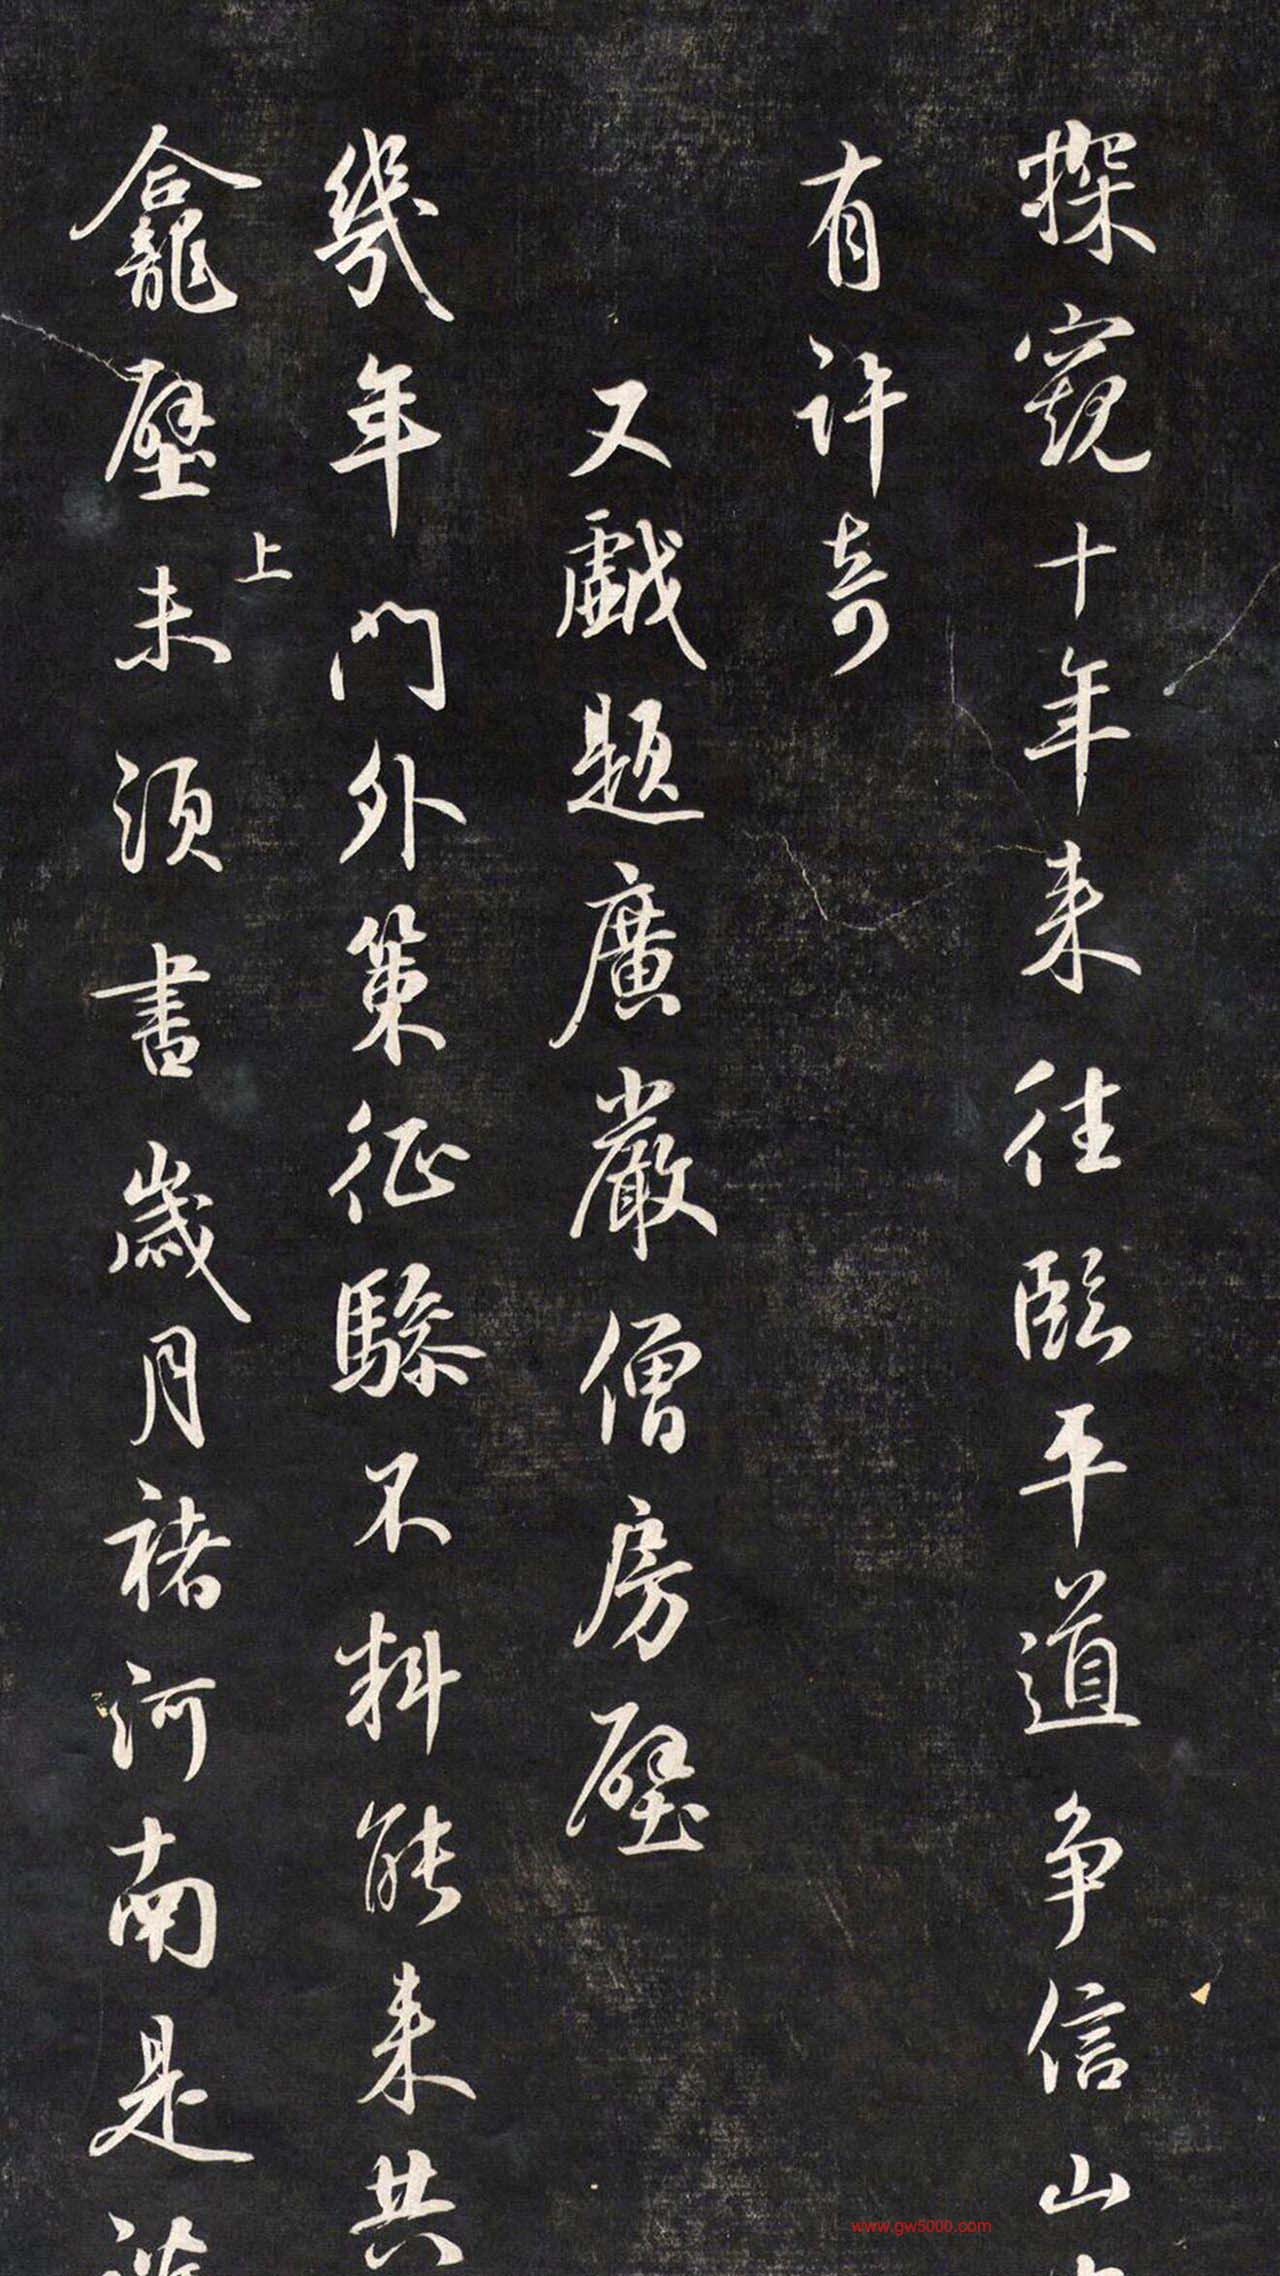 探窺十年来往臨平道争信山
有許奇
又戲題廣嚴僧房壁
幾年門外策征驂不料能来共
龕壁未須書歲月褚河南是
上
www.gw5000.com